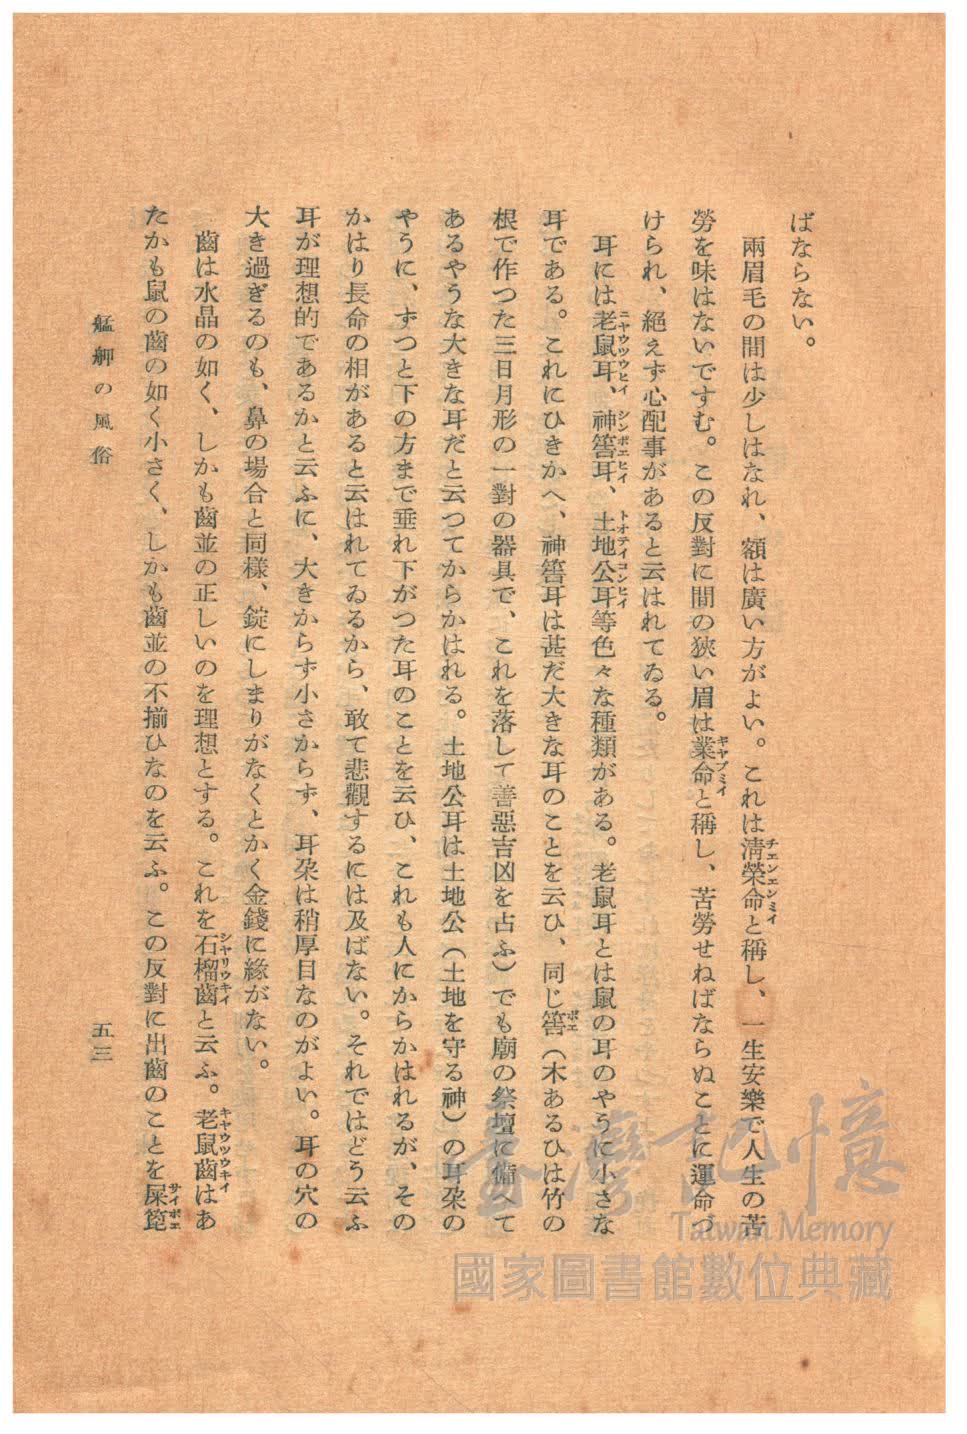 ばならない。
兩眉毛の間は少しはなれ、額は廣い方がよい。これは淸榮命と稱し、一生安樂で人生の苦
チエンエンミイ
勞を味はないですむ。この反對に間の狹い眉は業命と稱し、苦勞せねばならぬことに運命づ
ギヤプミイ
けられ、絕えず心配事があると云はれてゐる。
耳には老鼠耳、神筶耳、土地公耳等色々な種類がある。老鼠耳とは鼠の耳のやうに小さな
ニヤウツウヒイ シンポエヒイ トオテイコンヒイ
耳である。これにひきかへ、神筶耳は甚だ大きな耳のことを云ひ、同じ筶（木あるひは竹の
ポエ
根で作つた三日月形の一對の器具で、これを落して善惡吉凶を占ふ）でも廟の祭壇に備へて
あるやうな大きな耳だと云つてからかはれる。土地公耳は土地公（土地を守る神）の耳朶の
やうに、ずつと下の方まで垂れ下がつた耳のことを云ひ、これも人にからかはれるが、その
かはり長命の相があると云はれてゐるから、敢て悲觀するには及ばない。それではどう云ふ
耳が理想的であるかと云ふに、大きからず小さからず、耳朶は稍厚目なのがよい。耳の穴の
大き過ぎるのも、鼻の場合と同樣、錠にしまりがなくとかく金錢に緣がない。
齒は水晶の如く、しかも齒並の正しいのを理想とする。これを石榴齒と云ふ。老鼠齒はあ
シヤリウキイ キヤウツウキイ
たかも鼠の齒の如く小さく、しかも齒並の不揃ひなのを云ふ。この反對に出齒のことを屎箆
サイポエ
艋舺の風俗
五三
臺灣記憶
Taiwan Memory
國家圖書館數位典藏